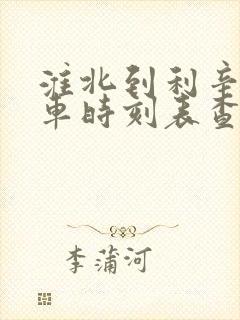 淮北到利辛
車時刻表查
李蒲河